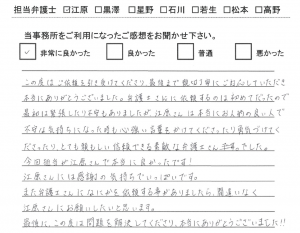 担当弁護士 ☑江原 □黒澤 □星野 □石川 □若生 □松本 □高野
当事務所をご利用になったご感想をお聞かせ下さい。
☑ 非常に良かった □ 良かった □ 普通 □ 悪かった
この度はご依頼を引き受けてくださり、最後まで親切丁寧にご対応していただき
本当にありがとうございました。弁護士さんに依頼するのは初めてだったので
最初は緊張したり不安もありましたが、江原さんは本当にお人柄の良い人で
不安な気持ちになった時も心強い言葉をかけてくださったり勇気づけてく
ださったり、とても頼もしい信頼できる素敵な弁護士さんでした。
今回担当が江原さんで本当に良かったです！
江原さんには感謝の気持ちでいっぱいです。
また弁護士さんになにかを依頼する事がありましたら、間違いなく
江原さんにお願いしたいと思います。
最後に、この度は問題を解決してくださり、本当にありがとうございました!!